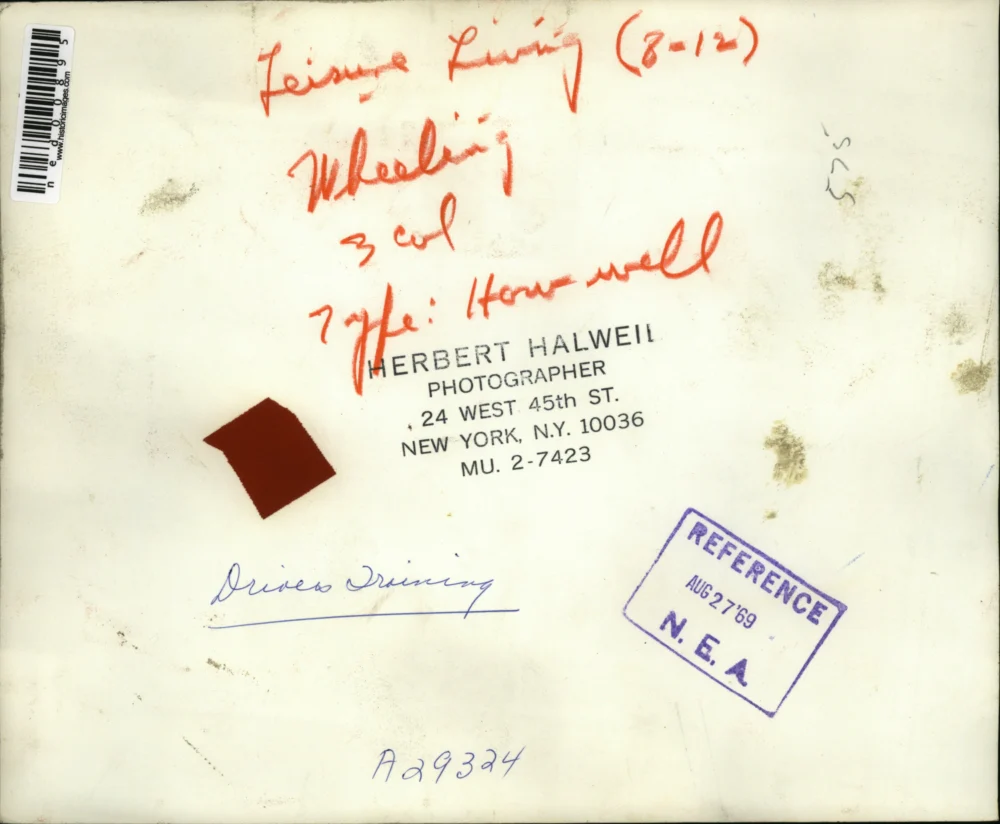 Leisure Living (8-12)
Wheeling
3 col
Type: How well
HERBERT HALWEIL
PHOTOGRAPHER
24 WEST 45th ST.
NEW YORK, N.Y. 10036
MU. 2-7423
Drivers Training
REFERENCE
AUG 27 '69
N. E. A.
A29324
575
ned00895
www.historicimages.com